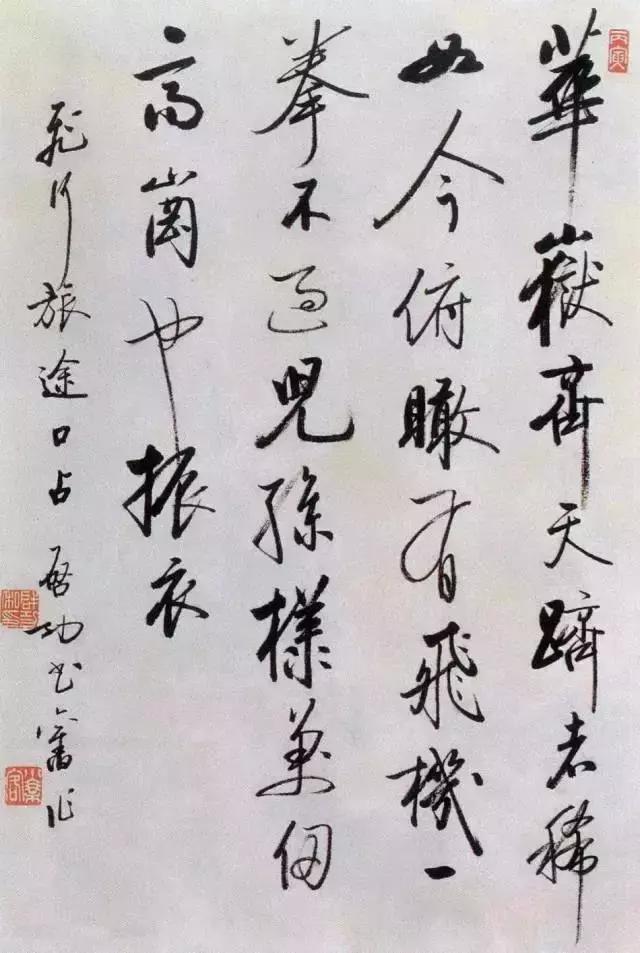 華嶽齊天躋者稀
如今俯瞰有飛機一
拳不過兒孫樣萬仞
高岡也振衣
飛行旅途口占 啟功書舊作
丙寅